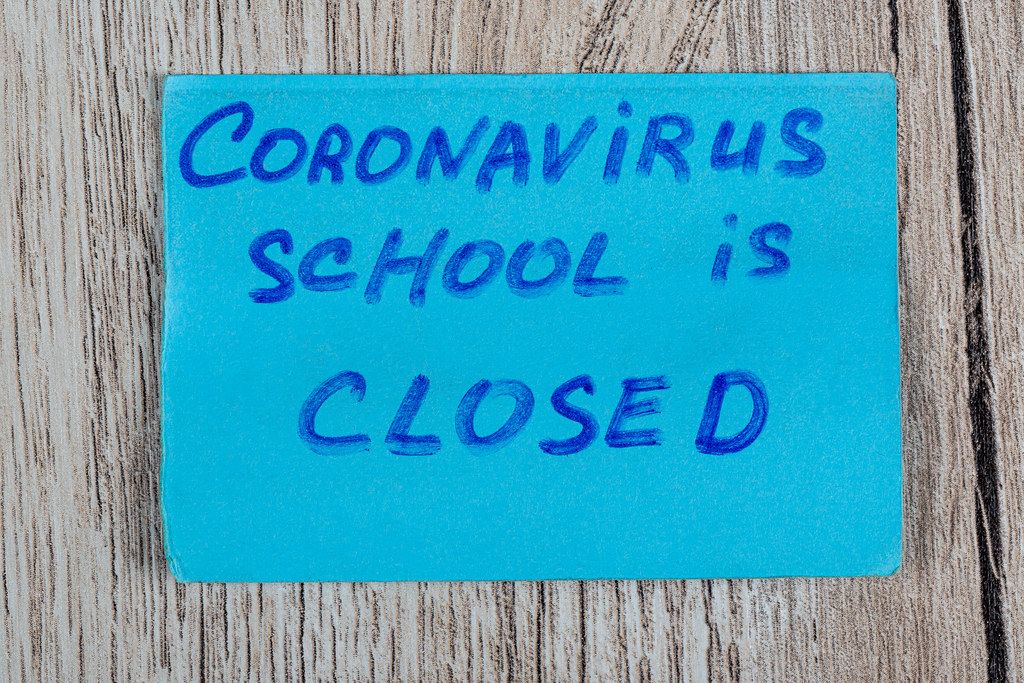 CORONAViRUS
SCHOOL iS
CLOSED